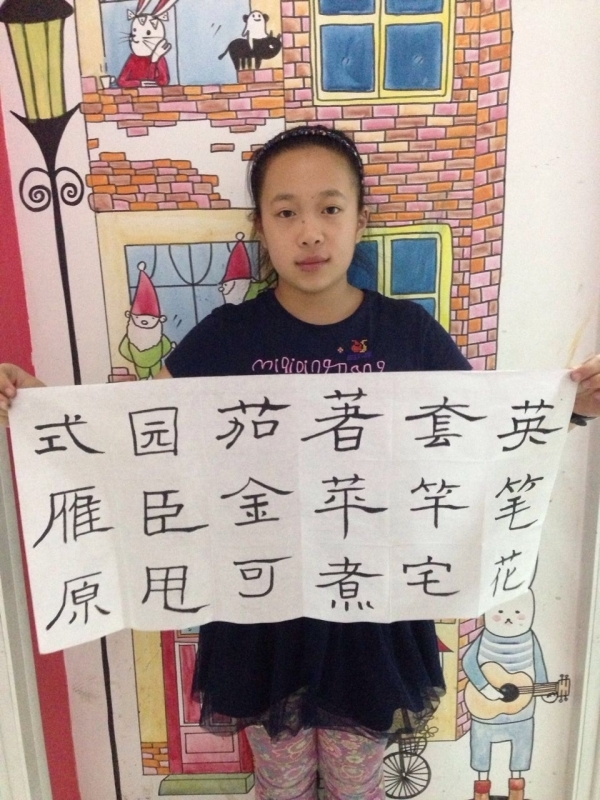 英笔花
套竿宅
著苹煮
茄金可
园臣甩
式雁原